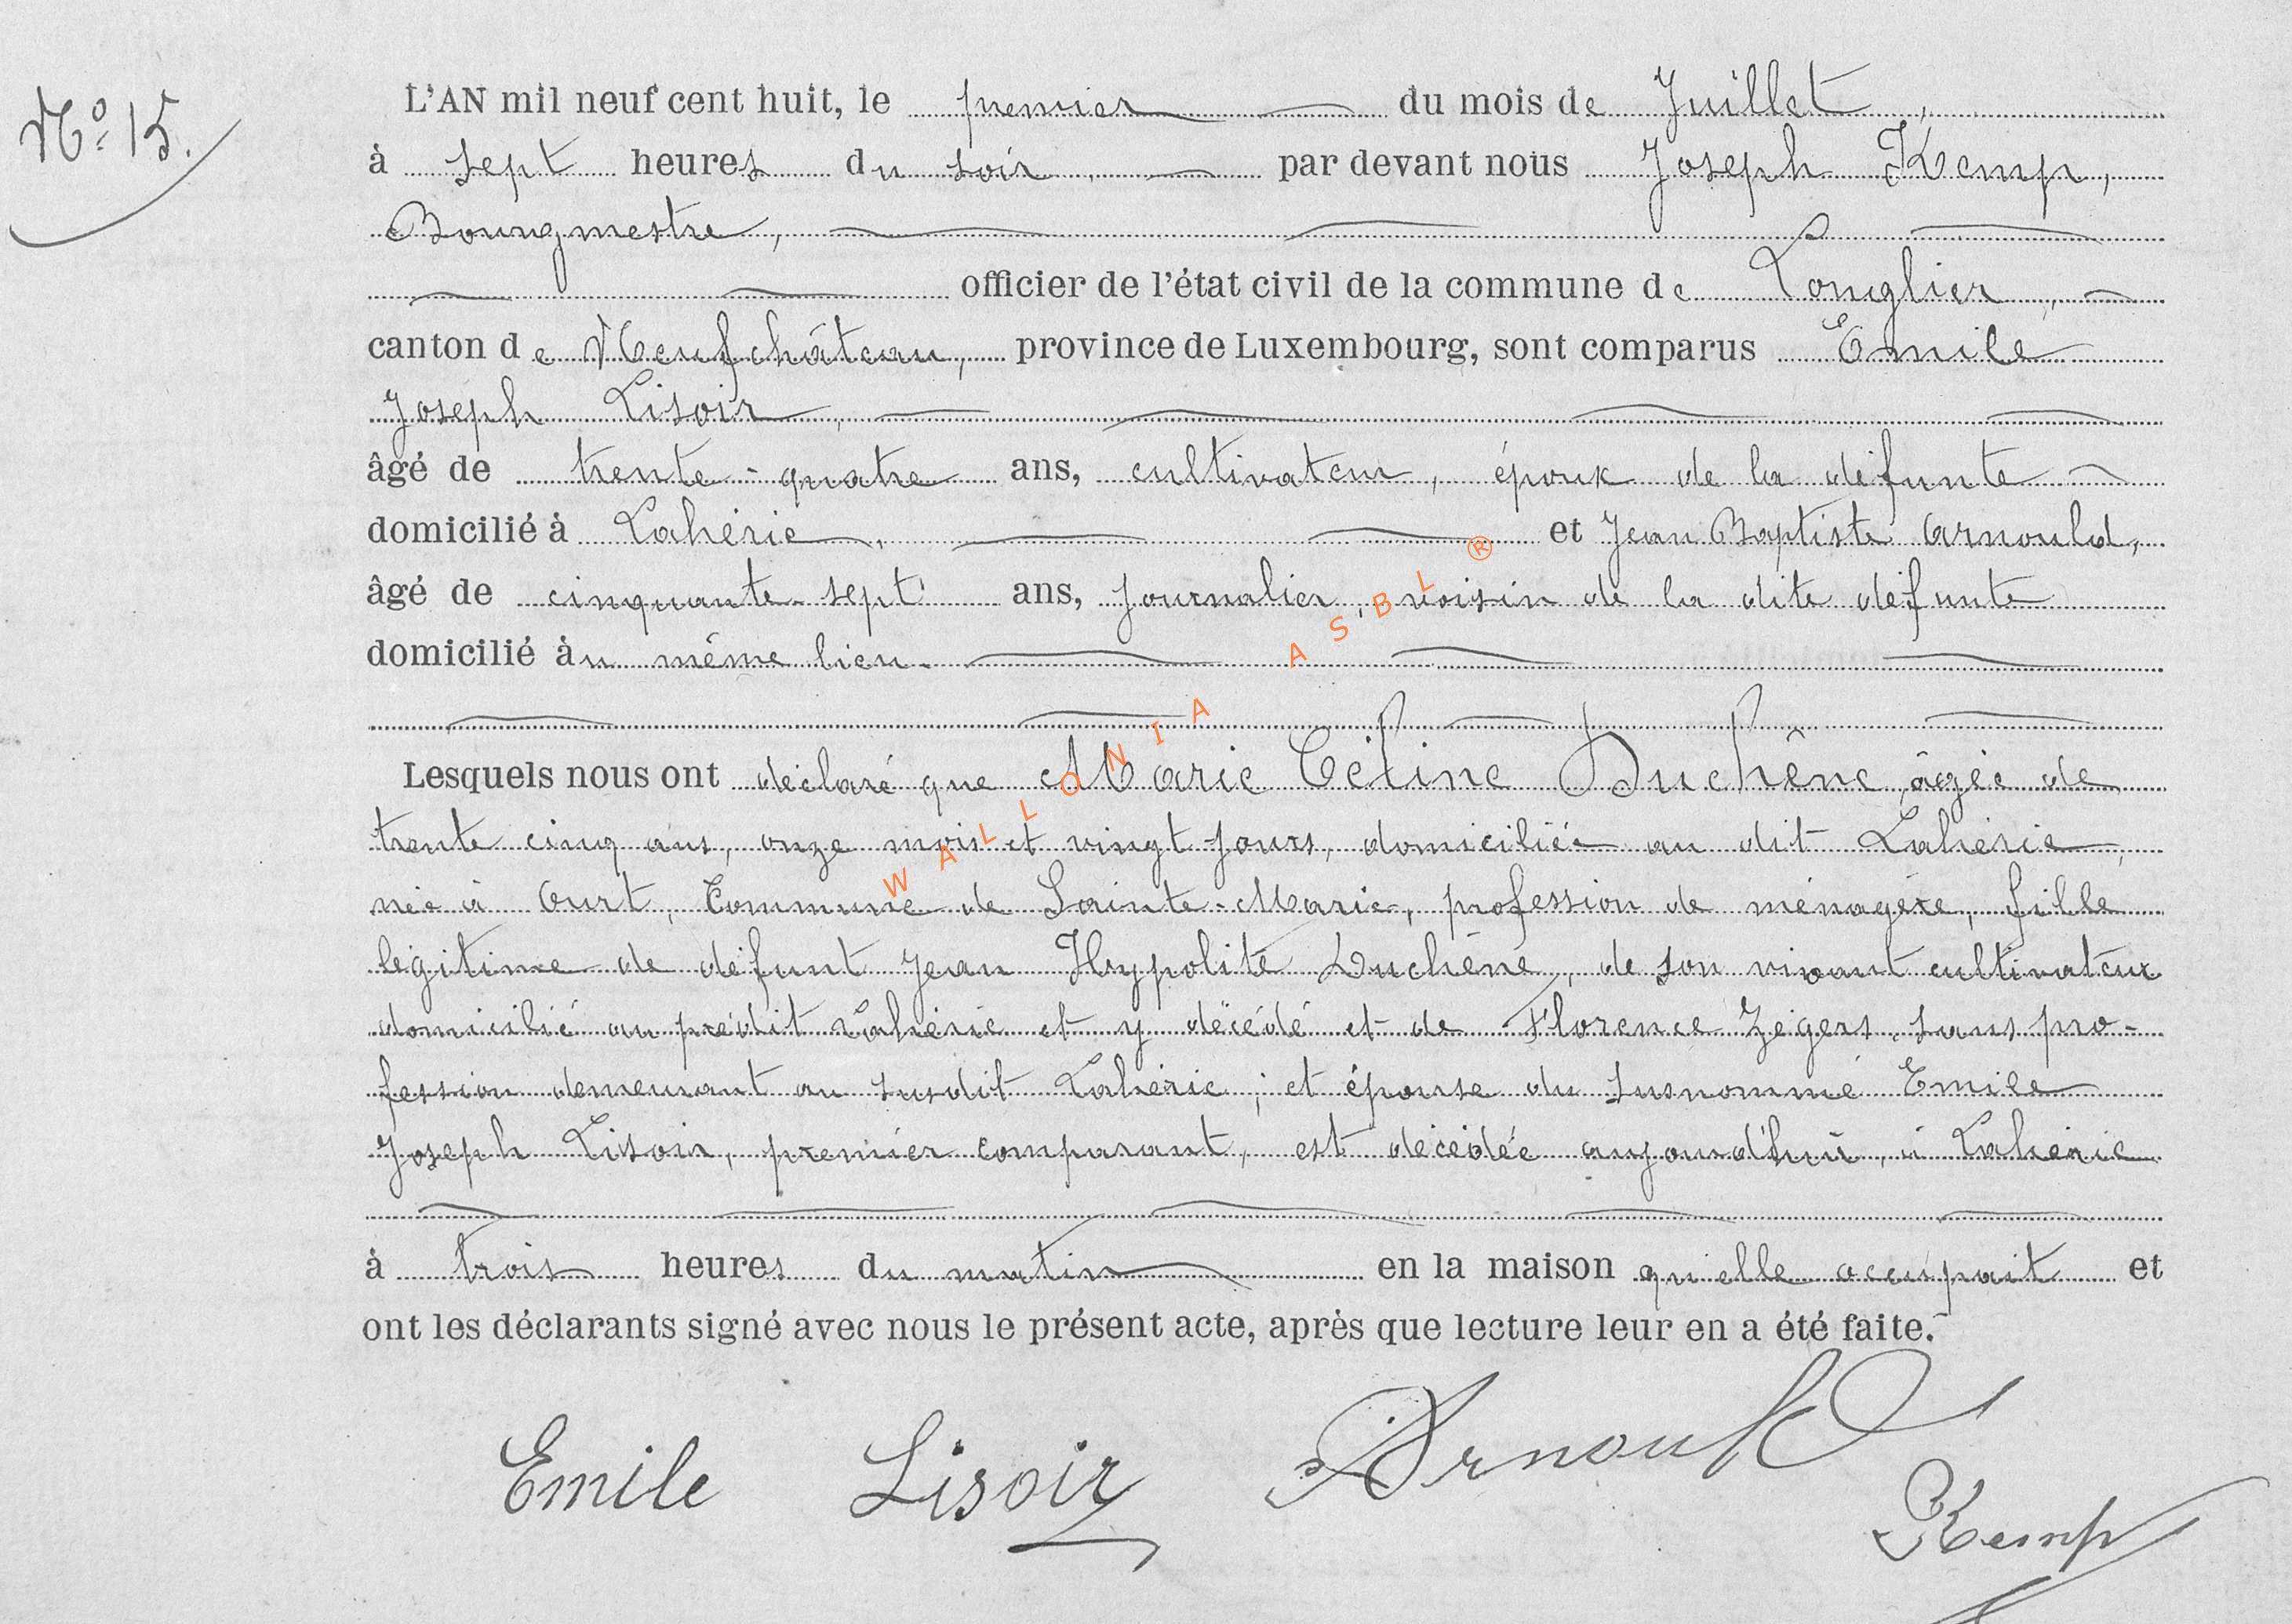 N° 15.
L'AN mil neuf cent huit, le premier du mois de Juillet,
à sept heures du soir par devant nous Joseph Kemp,
Bourgmestre,
officier de l'état civil de la commune de Longlier,
canton de Neufchâteau, province de Luxembourg, sont comparus Emile
Joseph Lisoir,
âgé de trente-quatre ans, cultivateur, époux de la défunte
domicilié à Lahérie, et Jean Baptiste Arnould,
âgé de cinquante-sept ans, journalier, voisin de la dite défunte
domicilié àu même lieu.
Lesquels nous ont déclaré que Marie Céline Duchêne âgée de
trente cinq ans, onze mois et vingt jours, domiciliée au dit Lahérie,
née à Ourt, Commune de Sainte-Marie, profession de ménagère, fille
légitime de défunt Jean Hypolite Duchêne, de son vivant cultivateur
domicilié au prédit Lahérie et y décédé et de Florence Zeigers sans pro-
fession demeurant au susdit Lahérie; et épouse du susnommé Emile
Joseph Lisoir, premier comparant, est décédée aujourd'hui, à Lahérie
à trois heures du matin en la maison qu'elle occupait et
ont les déclarants signé avec nous le présent acte, après que lecture leur en a été faite.
Emile Lisoir Arnould
Kemp
WALLONIA ASBL ®